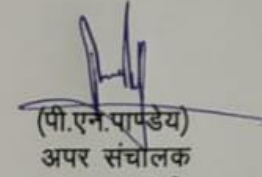 (पी.एन.पाण्डेय)
अपर संचालक